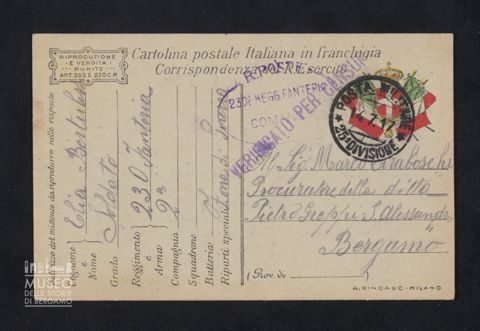 RIPRODUZIONE
E VENDITA
PUNITE
ART. 296 E 270 C.P.
Cartolina postale Italiana in franchigia
Corrispondenza del R. Esercito
R. POSTE
230° REGG. FANTERIA
VERIFICATO PER CENSURA
POSTA MILITARE
14.7.17
25ª DIVISIONE
Indirizzo del mittente da riprodursi nelle risposte
Cognome e Nome Elia Bertulessi
Grado Soldato
Reggimento 230 Fanteria
e Arma
Compagnia 2ª
Squadrone
Batteria
Riparti speciali
Al Sig. Marco
Procuratore della ditta
Pietro Greppi S. Alessandro
Bergamo
(Prov. di )
A. BINDA & C - MILANO
MUSEO
DELLE STORIE
DI BERGAMO